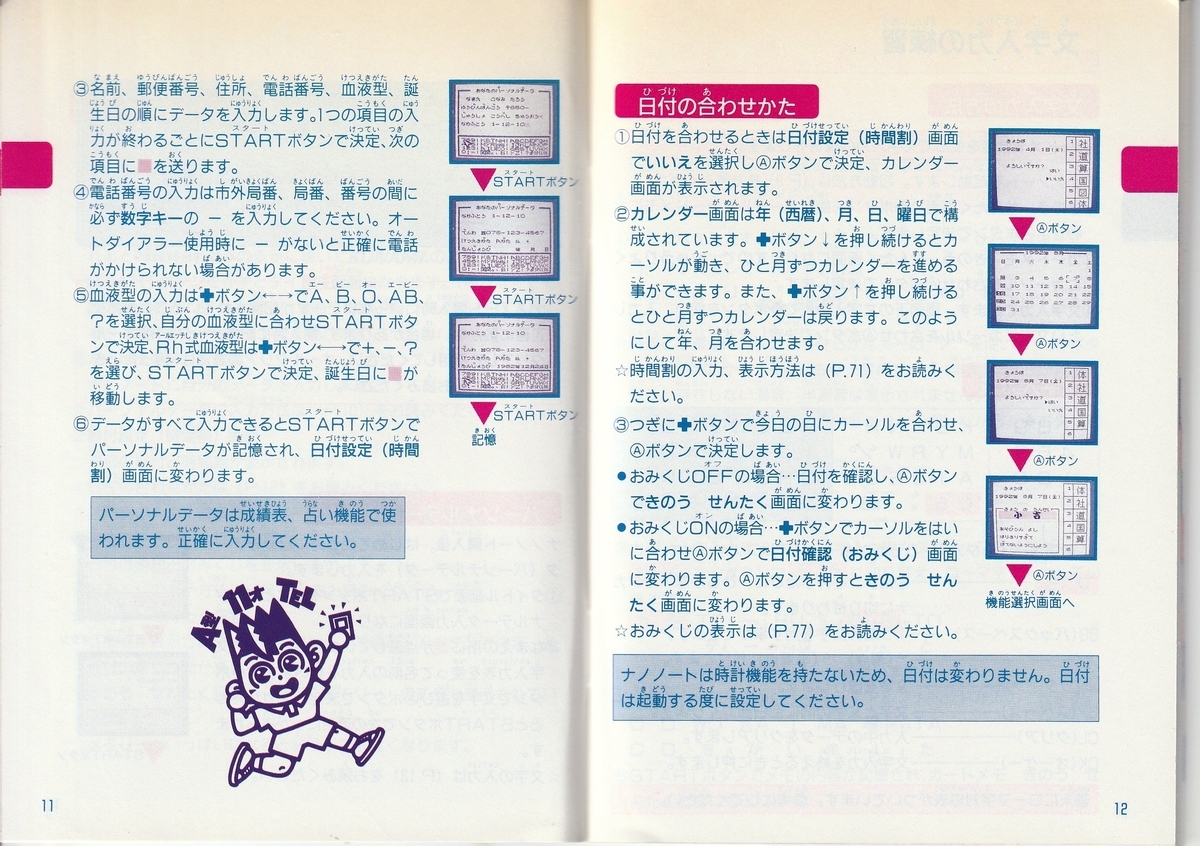 ③名前、郵便番号、住所、電話番号、血液型、誕
生日の順にデータを入力します。1つの項目の入
力が終わるごとにSTARTボタンで決定、次の
項目に■を送ります。
④電話番号の入力は市外局番、局番、番号の間に
必ず数字キーの − を入力してください。オー
トダイアラー使用時に − がないと正確に電話
がかけられない場合があります。
⑤血液型の入力は✚ボタン←→でA、B、O、AB、
?を選択、自分の血液型に合わせSTARTボタ
ンで決定、Rh式血液型は✚ボタン←→で+、−、?
を選び、STARTボタンで決定、誕生日に■が
移動します。
⑥データがすべて入力できるとSTARTボタンで
パーソナルデータが記憶され、日付設定(時間
割)画面に変わります。
パーソナルデータは成績表、占い機能で使
われます。正確に入力してください。
A型 11才 TEL
あなたのパーソナルデータ
▼STARTボタン
あなたのパーソナルデータ
でんわ ☎078-123-4567
▼STARTボタン
あなたのパーソナルデータ
でんわ ☎078-123-4567
▼STARTボタン
記憶
11
日付の合わせかた
①日付を合わせるときは日付設定(時間割)画面
でいいえを選択しⒶボタンで決定、カレンダー
画面が表示されます。
②カレンダー画面は年(西暦)、月、日、曜日で構
成されています。✚ボタン↓を押し続けるとカ
ーソルが動き、ひと月ずつカレンダーを進める
事ができます。また、✚ボタン↑を押し続ける
とひと月ずつカレンダーは戻ります。このよう
にして年、月を合わせます。
☆時間割の入力、表示方法は(P.71)をお読みく
ださい。
③つぎに✚ボタンで今日の日にカーソルを合わせ、
Ⓐボタンで決定します。
●おみくじOFFの場合…日付を確認し、Ⓐボタン
できのう せんたく画面に変わります。
●おみくじONの場合…✚ボタンでカーソルをはい
に合わせⒶボタンで日付確認(おみくじ)画面
に変わります。Ⓐボタンを押すときのう せん
たく画面に変わります。
☆おみくじの表示は(P.77)をお読みください。
ナノノートは時計機能を持たないため、日付は変わりません。日付
は起動する度に設定してください。
きょうは
1992年 4月 1日(水)
よろしいですか?
はい
▶いいえ
社
道
算
国
図
体
▼Ⓐボタン
▼Ⓐボタン
きょうは
よろしいですか?
▶はい
いいえ
体
社
道
国
算
▼Ⓐボタン
きょうは
小吉
体
社
道
国
算
▼Ⓐボタン
機能選択画面へ
12